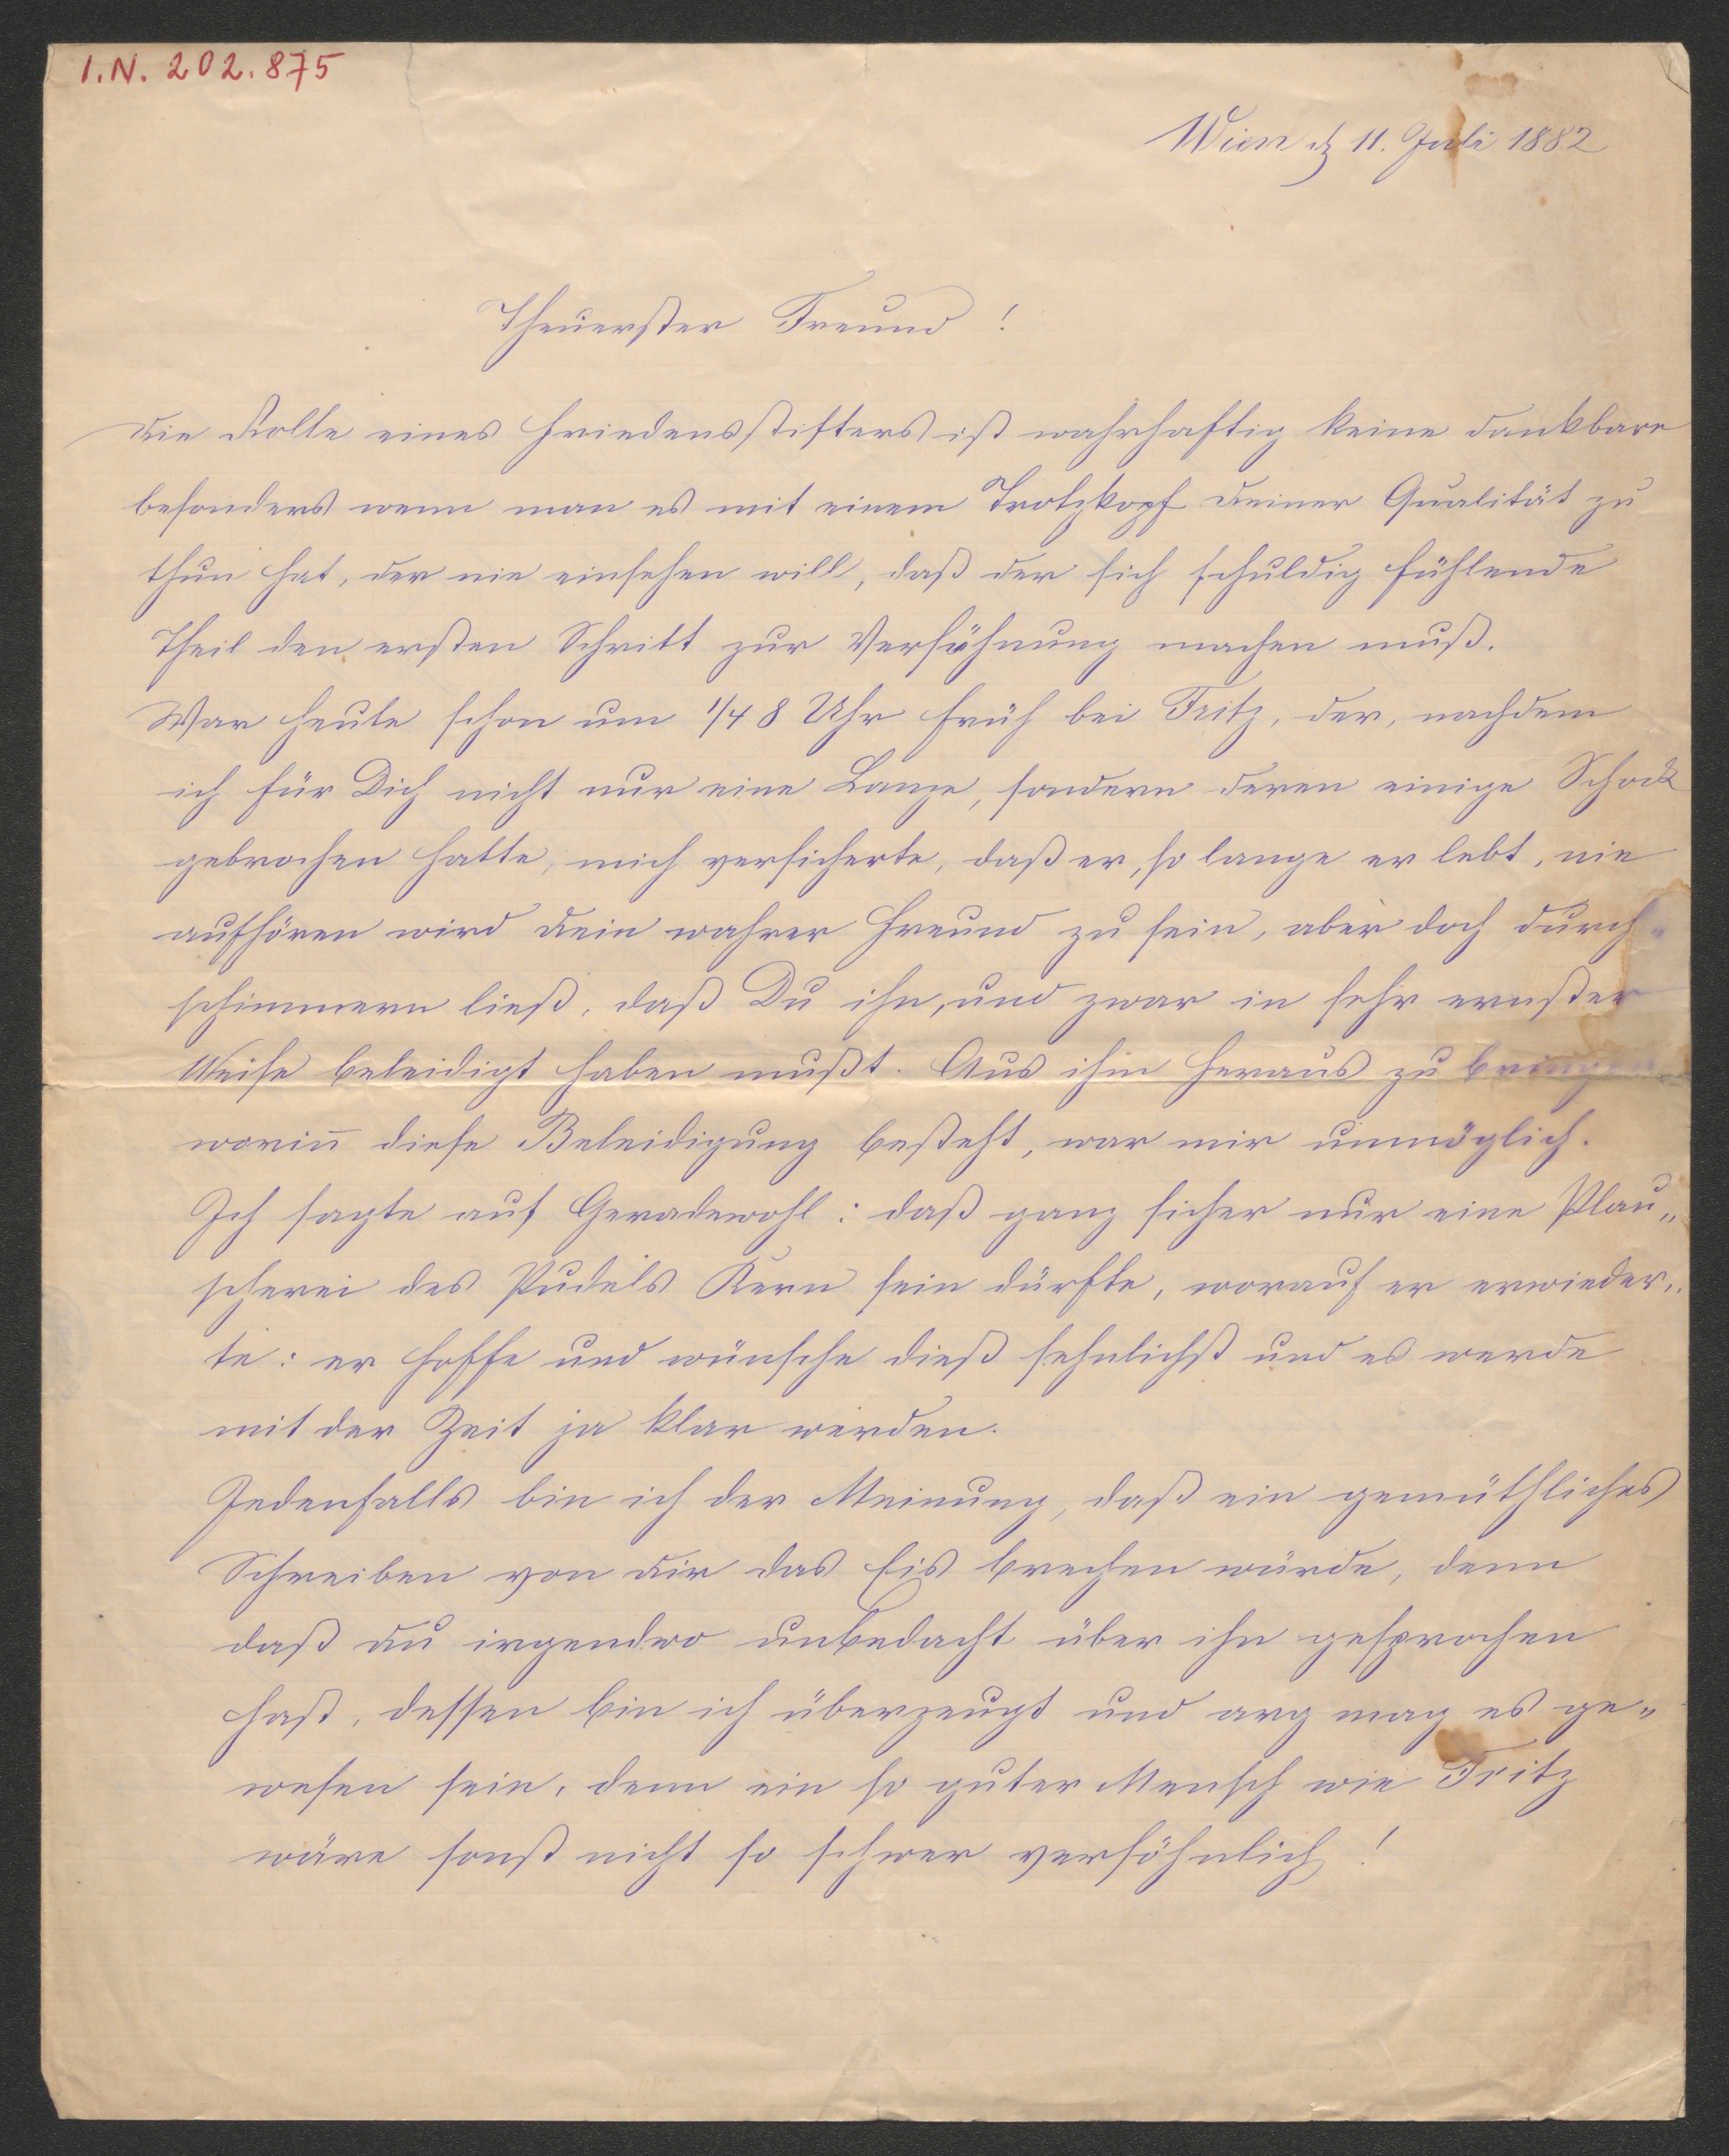 I.N. 202.875
Wien d 11. Juli 1882
Theuerster Freund !
die Rolle eines Friedensstifters ist wahrhaftig keine dankbare
besonders wenn man es mit einem Trotzkopf deiner Qualität zu
thun hat, der nie einsehen will, daß der sich schuldig fühlende
Theil den ersten Schritt zur Versöhnung machen muß.
War heute schon um 1/4 8 Uhr früh bei Fritz, der, nachdem
ich für Dich nicht nur eine Lanze, sondern deren einige Schock
gebrochen hatte, mich versicherte, daß er, so lange er lebt, nie
aufhören wird dein wahrer Freund zu sein, aber doch durch„
schimmern ließ, daß Du ihn, und zwar in sehr ernster
Weise beleidigt haben mußt. Aus ihm heraus zu bringen
worin̄ diese Beleidigung besteht, war mir unmöglich.
Ich sagte auf Geradewohl : daß ganz sicher nur eine Plau„
scherei des Pudels Kern sein dürfte, worauf er erwieder„
te : er hoffe und wünsche dieß sehnlichst und es werde
mit der Zeit ja klar werden.
Jedenfalls bin ich der Meinung, daß ein gemüthliches
Schreiben von dir das Eis brechen würde, denn
daß du irgendwo unbedacht über ihn gesprochen
hast, dessen bin ich überzeugt und arg mag es ge„
wesen sein, denn ein so guter Mensch wie Fritz
wäre sonst nicht so schwer versöhnlich !